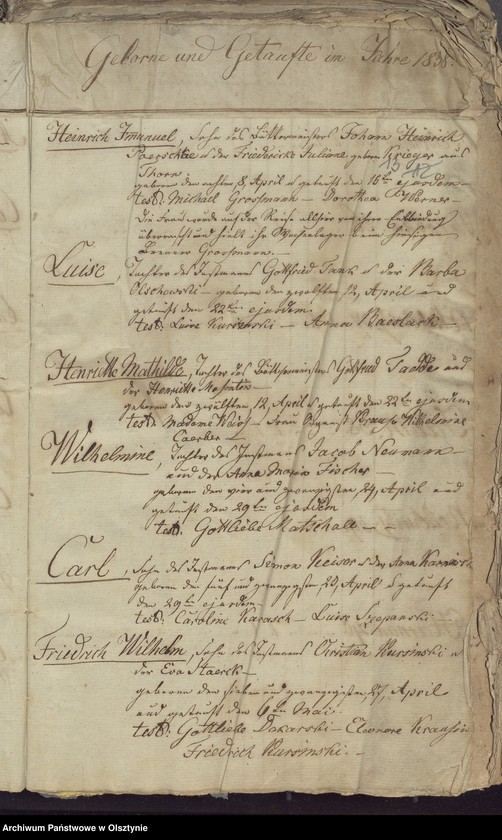 Geborne und Getaufte im Jahre 1838.
Heinrich Imanuel, Sohn des Böttcermeisters Johann Heinrich
u der Friedericke Juliane geborn. Krieger aus
Thorn
geboren den achten, 8, April u getauft den 15ten ejusdem
test: Michael Grossmann – Dorothea Horner
Die Frau wurde auf der Reise allhier von ihrer Entbindung
überrascht und hielt ihr Wochenlager beim hiesigen
Brenner Grossmann –
Luise, Tochter des Instmanns Gottfried u der Barba
Olschewski – geboren den zwölften, 12, April und
getauft den 22ten ejusdem.
test: Luise – Anna
Henriette Mathilde, Tochter des Gottfried Tadde und
der Henriette
geboren den zwölften, 12, April u getauft den 22ten ejusdem
test: Madame – Frau Organist Wilhelmine
Wilhelmine, Tochter des Instmanns Jacob Neumann
und der Anna Maria Fischer –
geboren den vier und zwanzigsten, 24, April und
getauft den 29ten ejusdem
test. Gottliebe Matschall –
Carl, Sohn des Instmanns Simon u der Anna
geboren den fünf und zwanzigsten, 25, April u getauft
den 29ten ejusdem
test: Caroline Karasch – Luise Szepanski
Friedrich Wilhelm, Sohn des Instmanns Christian Kursinski u
der Eva Staerck –
geboren den sieben und zwanzigsten, 27, April
und getauft den 6ten Mai.
test: Gottliebe – Eleonore
Friedrich Kursinski. –
Archiwum Państwowe w Olsztynie